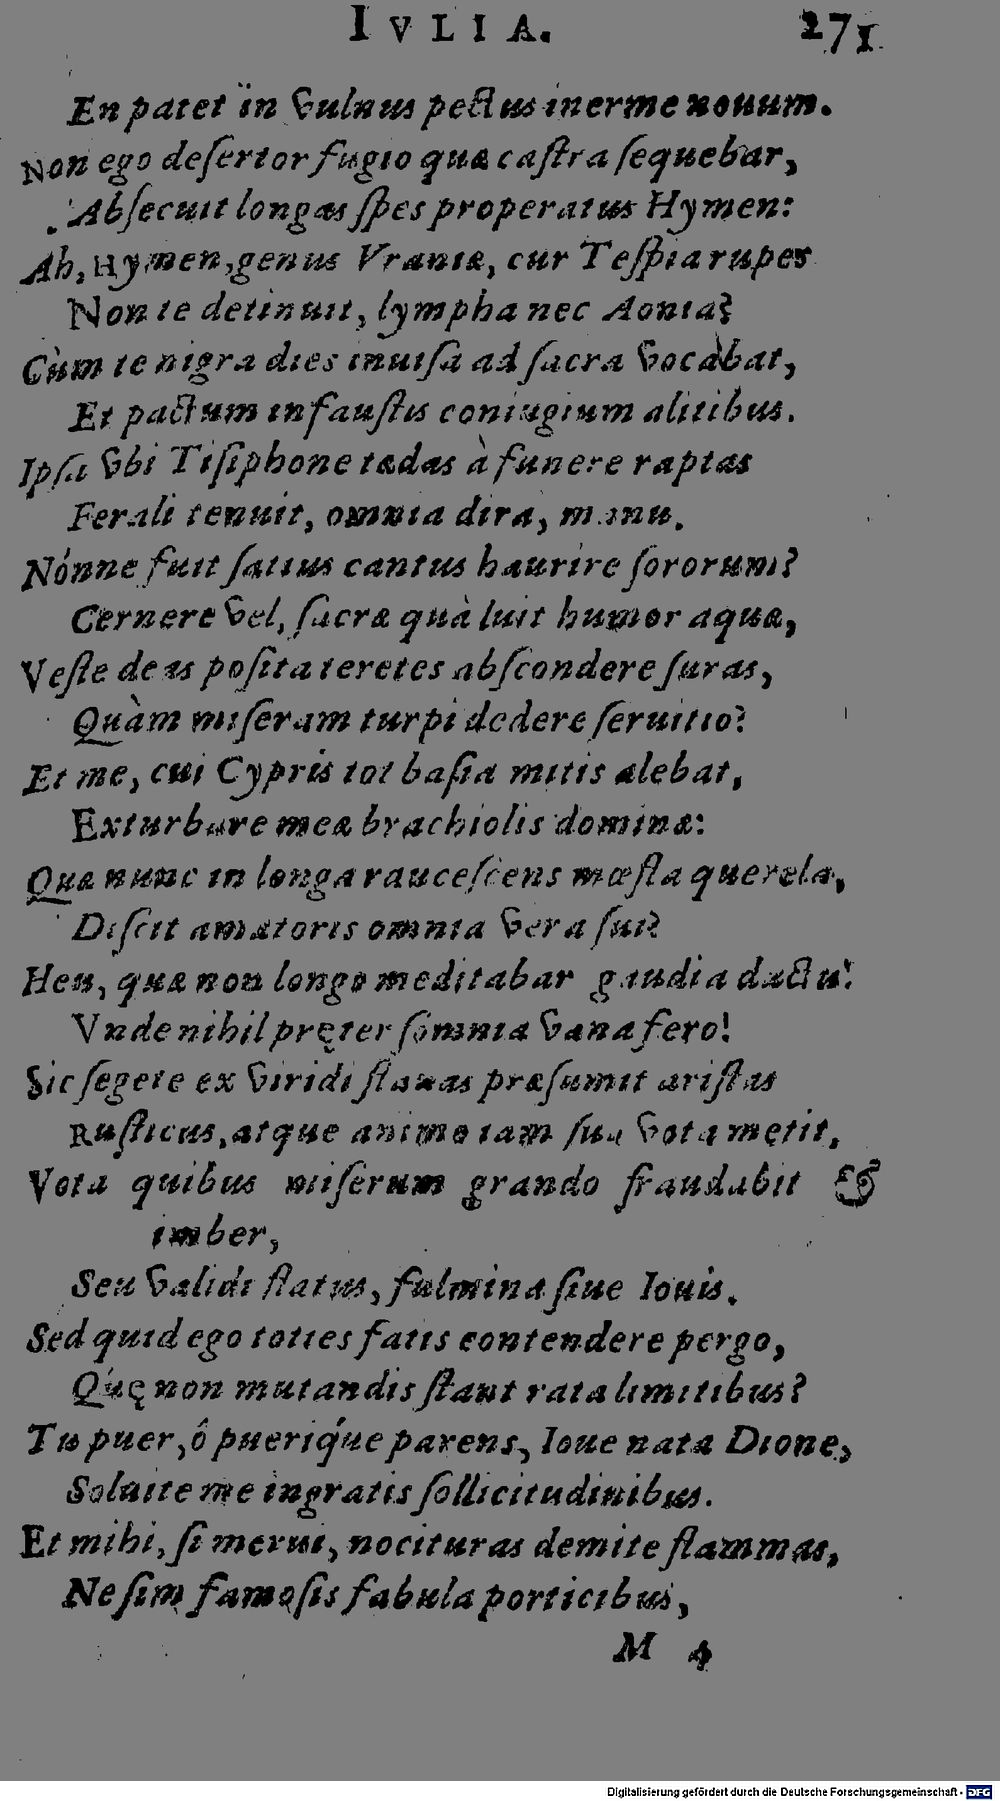 IVLIA. 271
En patet in vulnus pectus inerme nouum.
Non ego desertor fugio quæ castra sequebar,
Absecuit longas spes properatus Hymen:
Ah, Hymen, genus Vraniæ, cur Tespia rupes
Non te detinuit, lympha nec Aonia?
Cùm te nigra dies inuisa ad sacra vocàbat,
Et pactum infaustis coniugium alitibus.
Ipsa vbi Tisiphone tædas à funere raptas
Ferali tenuit, omnia dira, manu.
Nónne fuit satius cantus haurire sororum?
Cernere vel, sacræ quà luit humor aquæ,
Veste deas posita teretes abscondere suras,
Quàm miseram turpi dedere seruitio?
Et me, cui Cypris tot basia mitis alebat,
Exturbare meæ brachiolis dominæ:
Quæ nunc in longa raucescens mœsta querela,
Discit amatoris omnia vera sui?
Heu, quæ non longo meditabar gaudia ductu!
Vnde nihil pręter somnia vana fero!
Sic segete ex viridi flauas præsumit aristas
Rusticus, atque animo iam sua vota metit,
Vota quibus miserum grando fraudabit &
imber,
Seu validi flatus, fulmina siue Iouis.
Sed quid ego toties fatis contendere pergo,
Quę non mutandis stant rata limitibus?
Tu puer, ô pueriq́ue parens, Ioue nata Dione,
Soluite me ingratis sollicitudinibus.
Et mihi, si merui, nocituras demite flammas,
Ne sim famosis fabula porticibus,
M 4
Digitalisierung gefördert durch die Deutsche Forschungsgemeinschaft - DFG